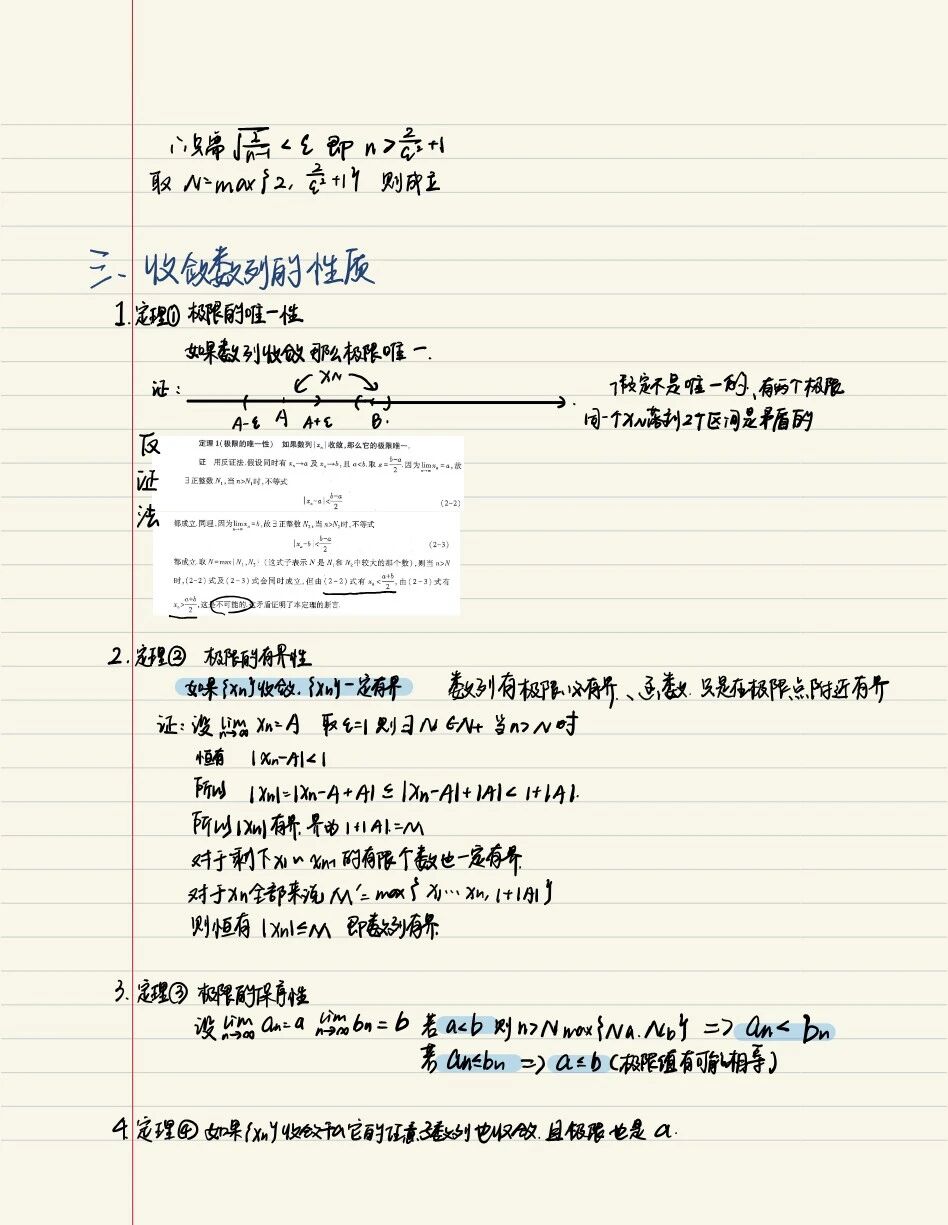 ∴只需 √(2/(n-1)) < ε 即 n > 2/ε² +1
取 N=max{2, 2/ε² +1} 则成立
三、收敛数列的性质
1.定理① 极限的唯一性
如果数列收敛那么极限唯一.
证: XN
A-ε A A+ε B.
假定不是唯一的、有两个极限
同一个XN落到2个区间是矛盾的
反证法
定理1(极限的唯一性) 如果数列{xₙ}收敛,那么它的极限唯一.
证 用反证法.假设同时有 xₙ→a 及 xₙ→b,且 a<b.取 ε=(b-a)/2.因为 lim(n→∞) xₙ=a,故
∃正整数 N₁,当 n>N₁时,不等式
|xₙ-a|<(b-a)/2 (2-2)
都成立.同理,因为lim(n→∞) xₙ=b,故∃正整数 N₂,当 n>N₂时,不等式
|xₙ-b|<(b-a)/2 (2-3)
都成立.取 N=max{N₁,N₂}(这式子表示 N 是 N₁和 N₂中较大的那个数),则当 n>N
时,(2-2)式及(2-3)式会同时成立.但由(2-2)式有 xₙ<(a+b)/2,由(2-3)式有
xₙ>(a+b)/2,这是不可能的.这矛盾证明了本定理的断言.
2.定理② 极限的有界性
如果{xn}收敛.{xn}一定有界 数列有极限必有界、函数 只是在极限点附近有界
证:设 lim(n→∞) xn=A 取ε=1 则∃N∈N+ 当n>N时
恒有 |xn-A|<1
所以 |xn|=|xn-A+A|≤|xn-A|+|A|<1+|A|.
所以|xn|有界.界为1+|A|.=M
对于剩下x1~xm的有限个数也一定有界.
对于xn全部来说 M'=max{x1···xn, 1+|A|}
则恒有 |xn|≤M 即数列有界.
3.定理③ 极限的保序性
设 lim(n→∞) an=a lim(n→∞) bn=b 若 a<b 则n>Nmax{Na.Nb} => an<bn
若 an≤bn => a≤b(极限值有可能相等)
4.定理④ 如果{xn}收敛于a 它的任意子数列也收敛.且极限也是a.